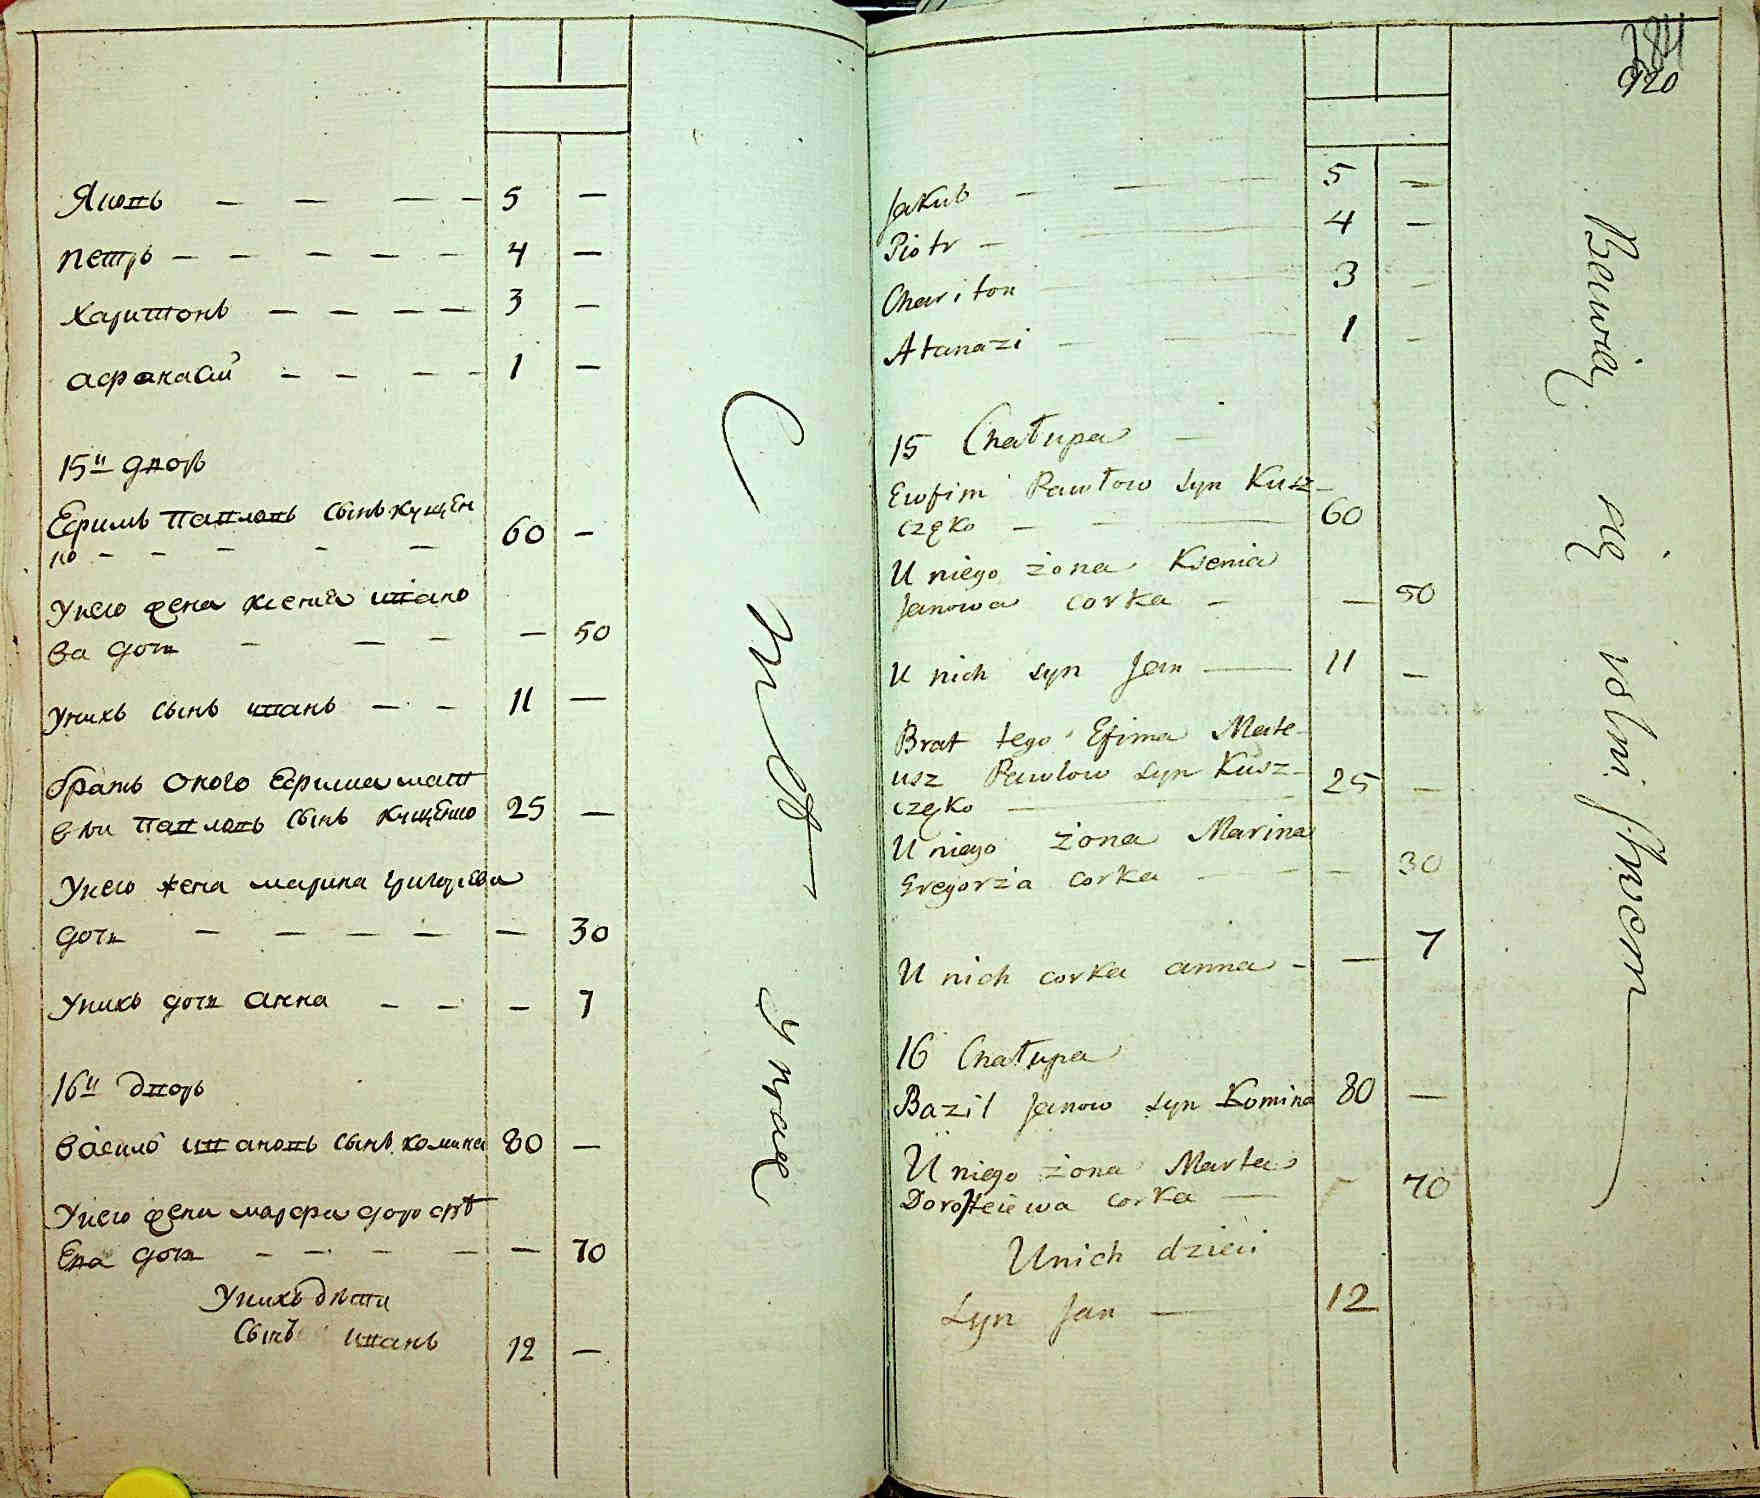 Яковъ — — — — 5 —
петръ — — — — — — 4 —
харитонъ — — — — 3 —
афанасий — — — — 1 —
15й дворъ
Ефимъ павловъ сынъ кущен
ко — — — — — 60 —
Унего жена ксения ивано
ва дочь — — — — 50
унихъ сынъ иванъ — — 11 —
братъ оного Ефима мат
вей павловъ сынъ кущенко 25 —
Унего жена марина григорева
дочь — — — — — 30
Унихъ дочь анна — — — 7
16й дворъ
василе ивановъ сынъ комина 80 —
Унего жена марфа дорофѣ
Ева дочь — — — — — 70
Унихъ дѣти
Сынъ иванъ 12 —
384
920
Jakub — — — 5 —
Piotr — — 4 —
Chariton — — 3 —
Atanazi — — 1 —
15 Chałupa —
Ewfim Pawłow syn Kusz-
częko — — 60
U niego żona Ksenia
Janowa corka — — 50
U nich syn Jan — 11 —
Brat tego Efima Mate-
usz Pawlow syn Kusz-
częko — 25 —
U niego żona Marina
Gregorża corka — — — 30
U nich corka anna — — 7
16 Chałupa
Bazil Janow syn Komina 80 —
U niego żona Marta
Doroteiewa corka — 70
U nich dzieci
Syn Jan — 12